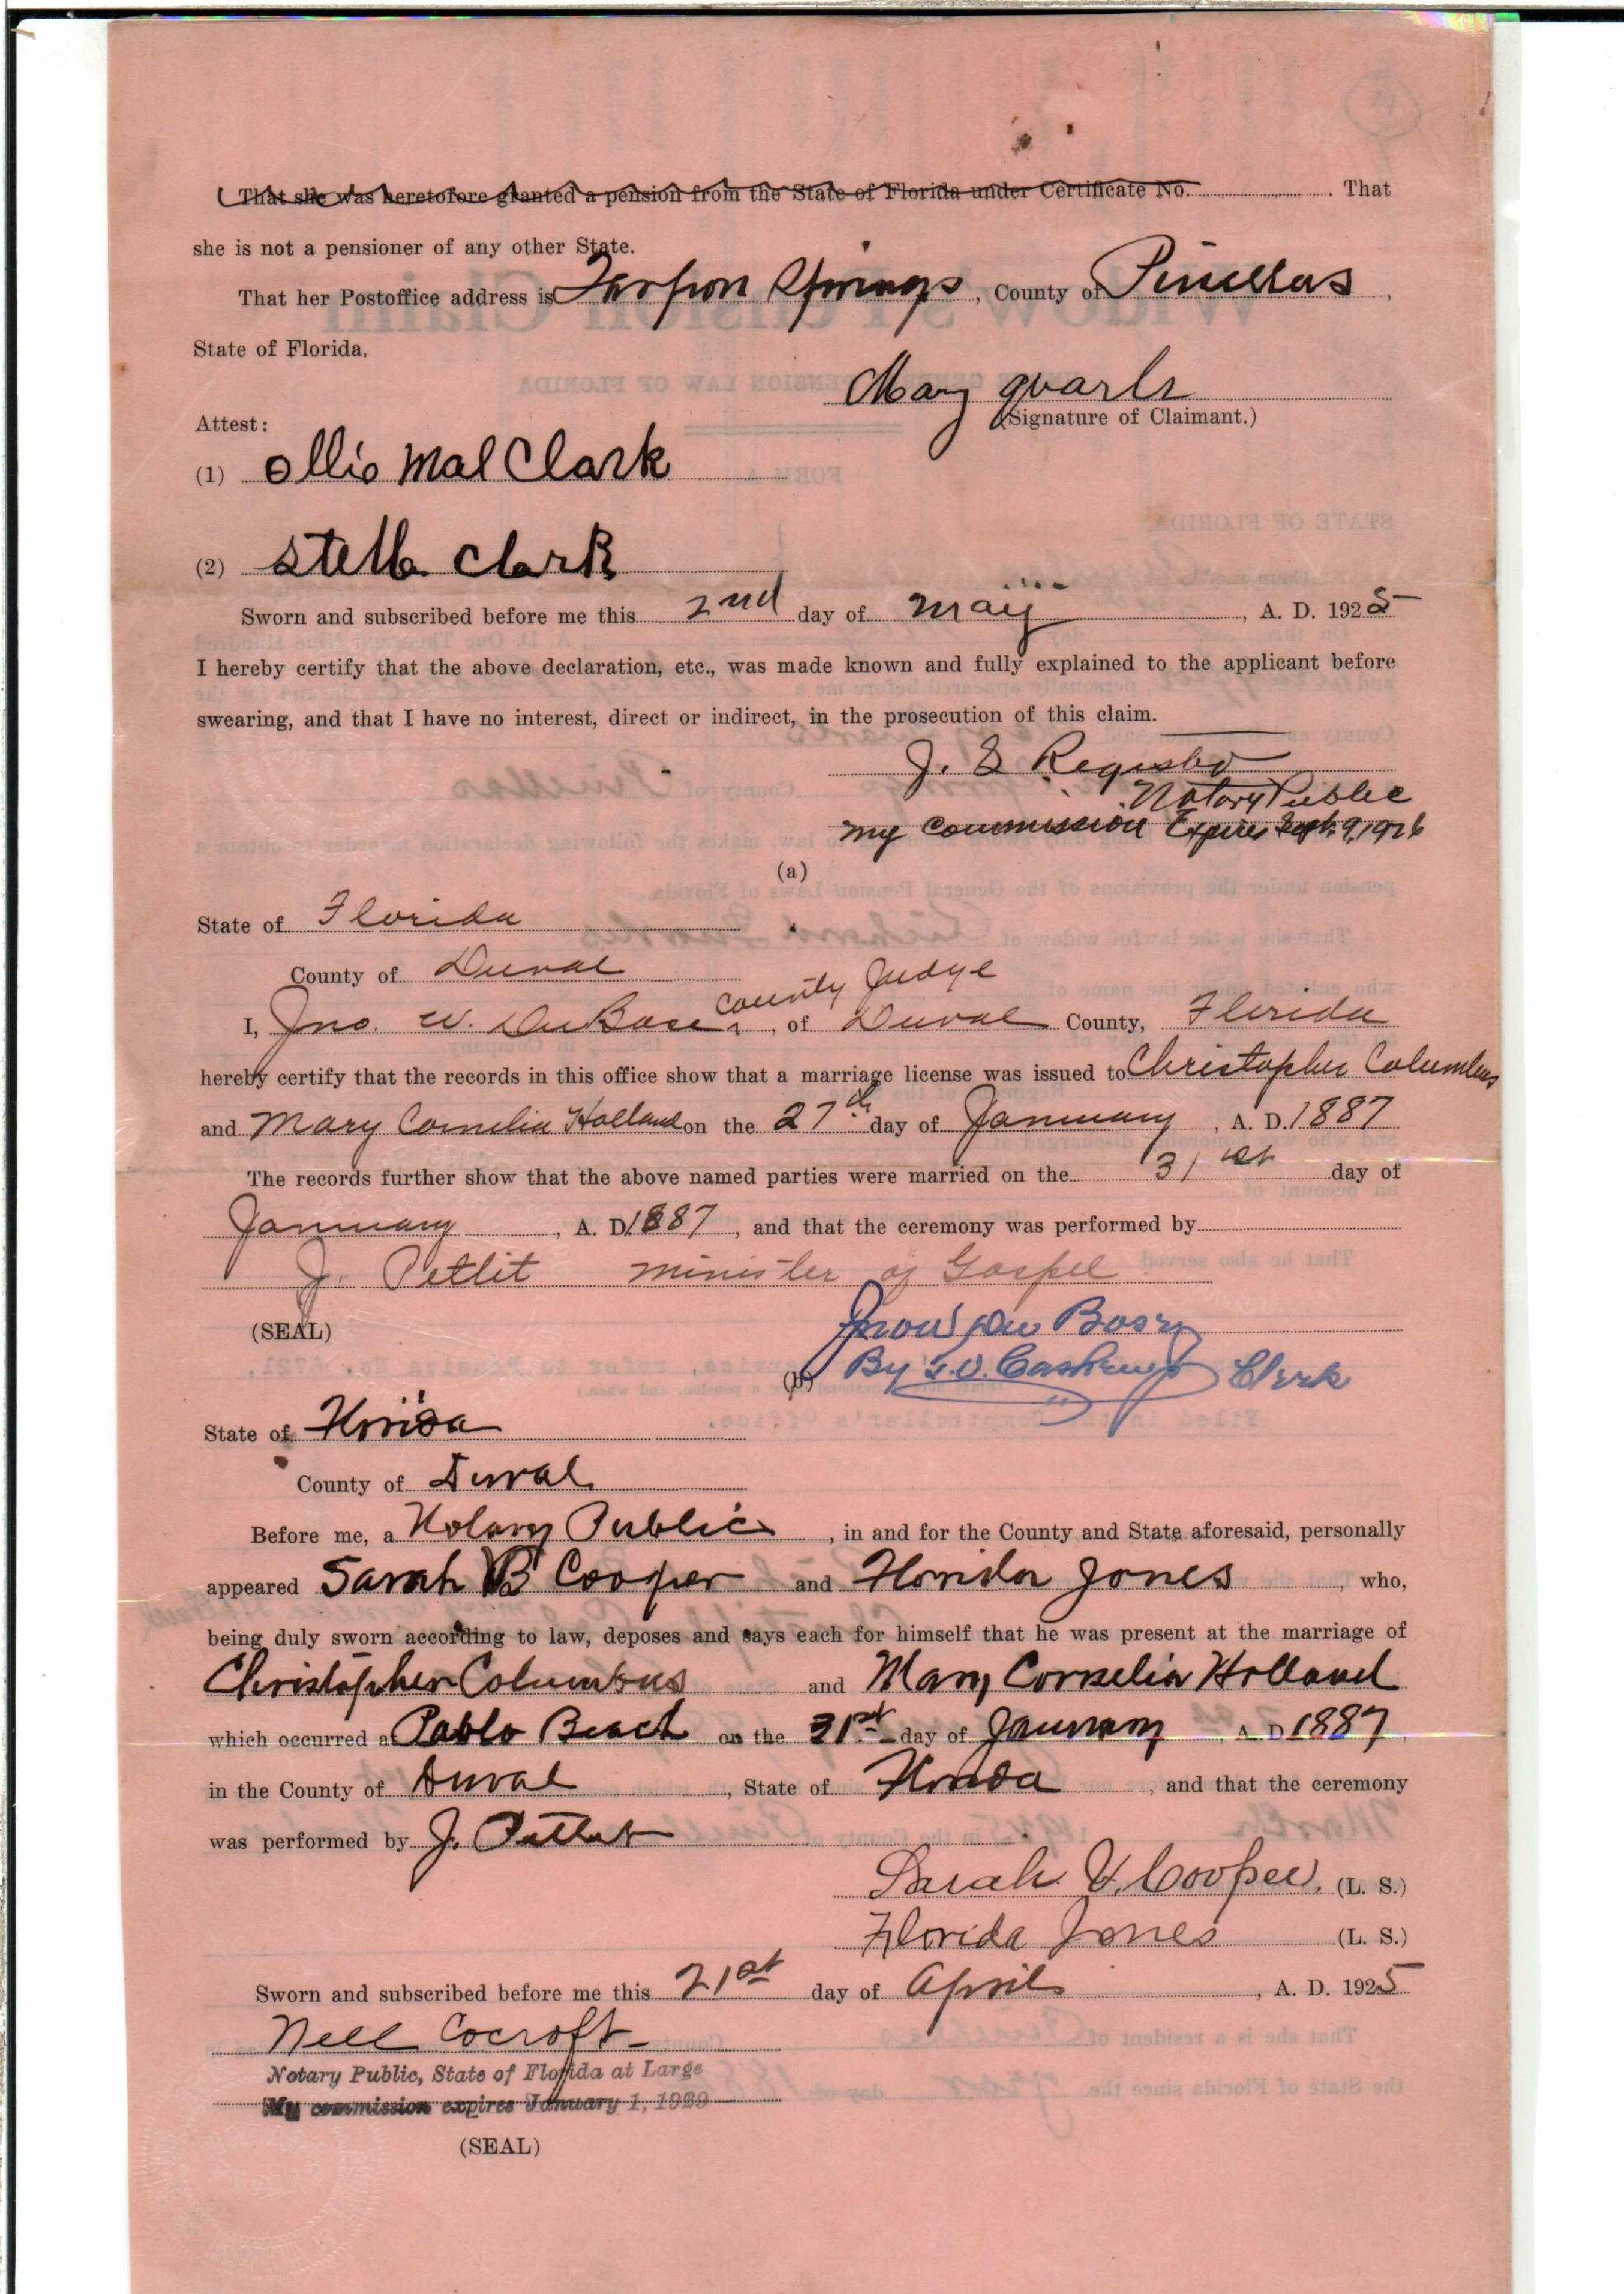 That she was heretofore granted a pension from the State of Florida under Certificate No. . That
she is not a pensioner of any other State.
That her Postoffice address is Tarpon Springs, County of Pinellas,
State of Florida.
Mary Quarls
(Signature of Claimant.)
Attest:
(1) Ollie Mal Clark
(2) Stella Clark
Sworn and subscribed before me this 2nd day of May, A. D. 1925
I hereby certify that the above declaration, etc., was made known and fully explained to the applicant before
swearing, and that I have no interest, direct or indirect, in the prosecution of this claim.
J. E Register
Notary Public
My Commission Expires Sept. 9, 1926
(a)
State of Florida
County of Duval
County Judge
I, Jno. W. DuBose, of Duval County, Florida
hereby certify that the records in this office show that a marriage license was issued to Christopher Columbus
and Mary Cornelia Holland on the 27th day of January, A. D. 1887
The records further show that the above named parties were married on the 31st day of
January, A. D. 1887, and that the ceremony was performed by
J. Petlit minister of Gospel
(SEAL)
Jno W DuBose
(b) By Clerk
State of Florida
County of Duval
Before me, a Notary Public, in and for the County and State aforesaid, personally
appeared Sarah B Cooper and Florida Jones, who,
being duly sworn according to law, deposes and says each for himself that he was present at the marriage of
Christopher Columbus and Mary Cornelia Holland
which occurred at Pablo Beach on the 31st day of January, A. D. 1887,
in the County of Duval, State of Florida, and that the ceremony
was performed by J. Petlit
Sarah V. Cooper. (L. S.)
Florida Jones (L. S.)
Sworn and subscribed before me this 21st day of April, A. D. 1925
Nell Cocroft
Notary Public, State of Florida at Large
My commission expires January 1, 1929
(SEAL)